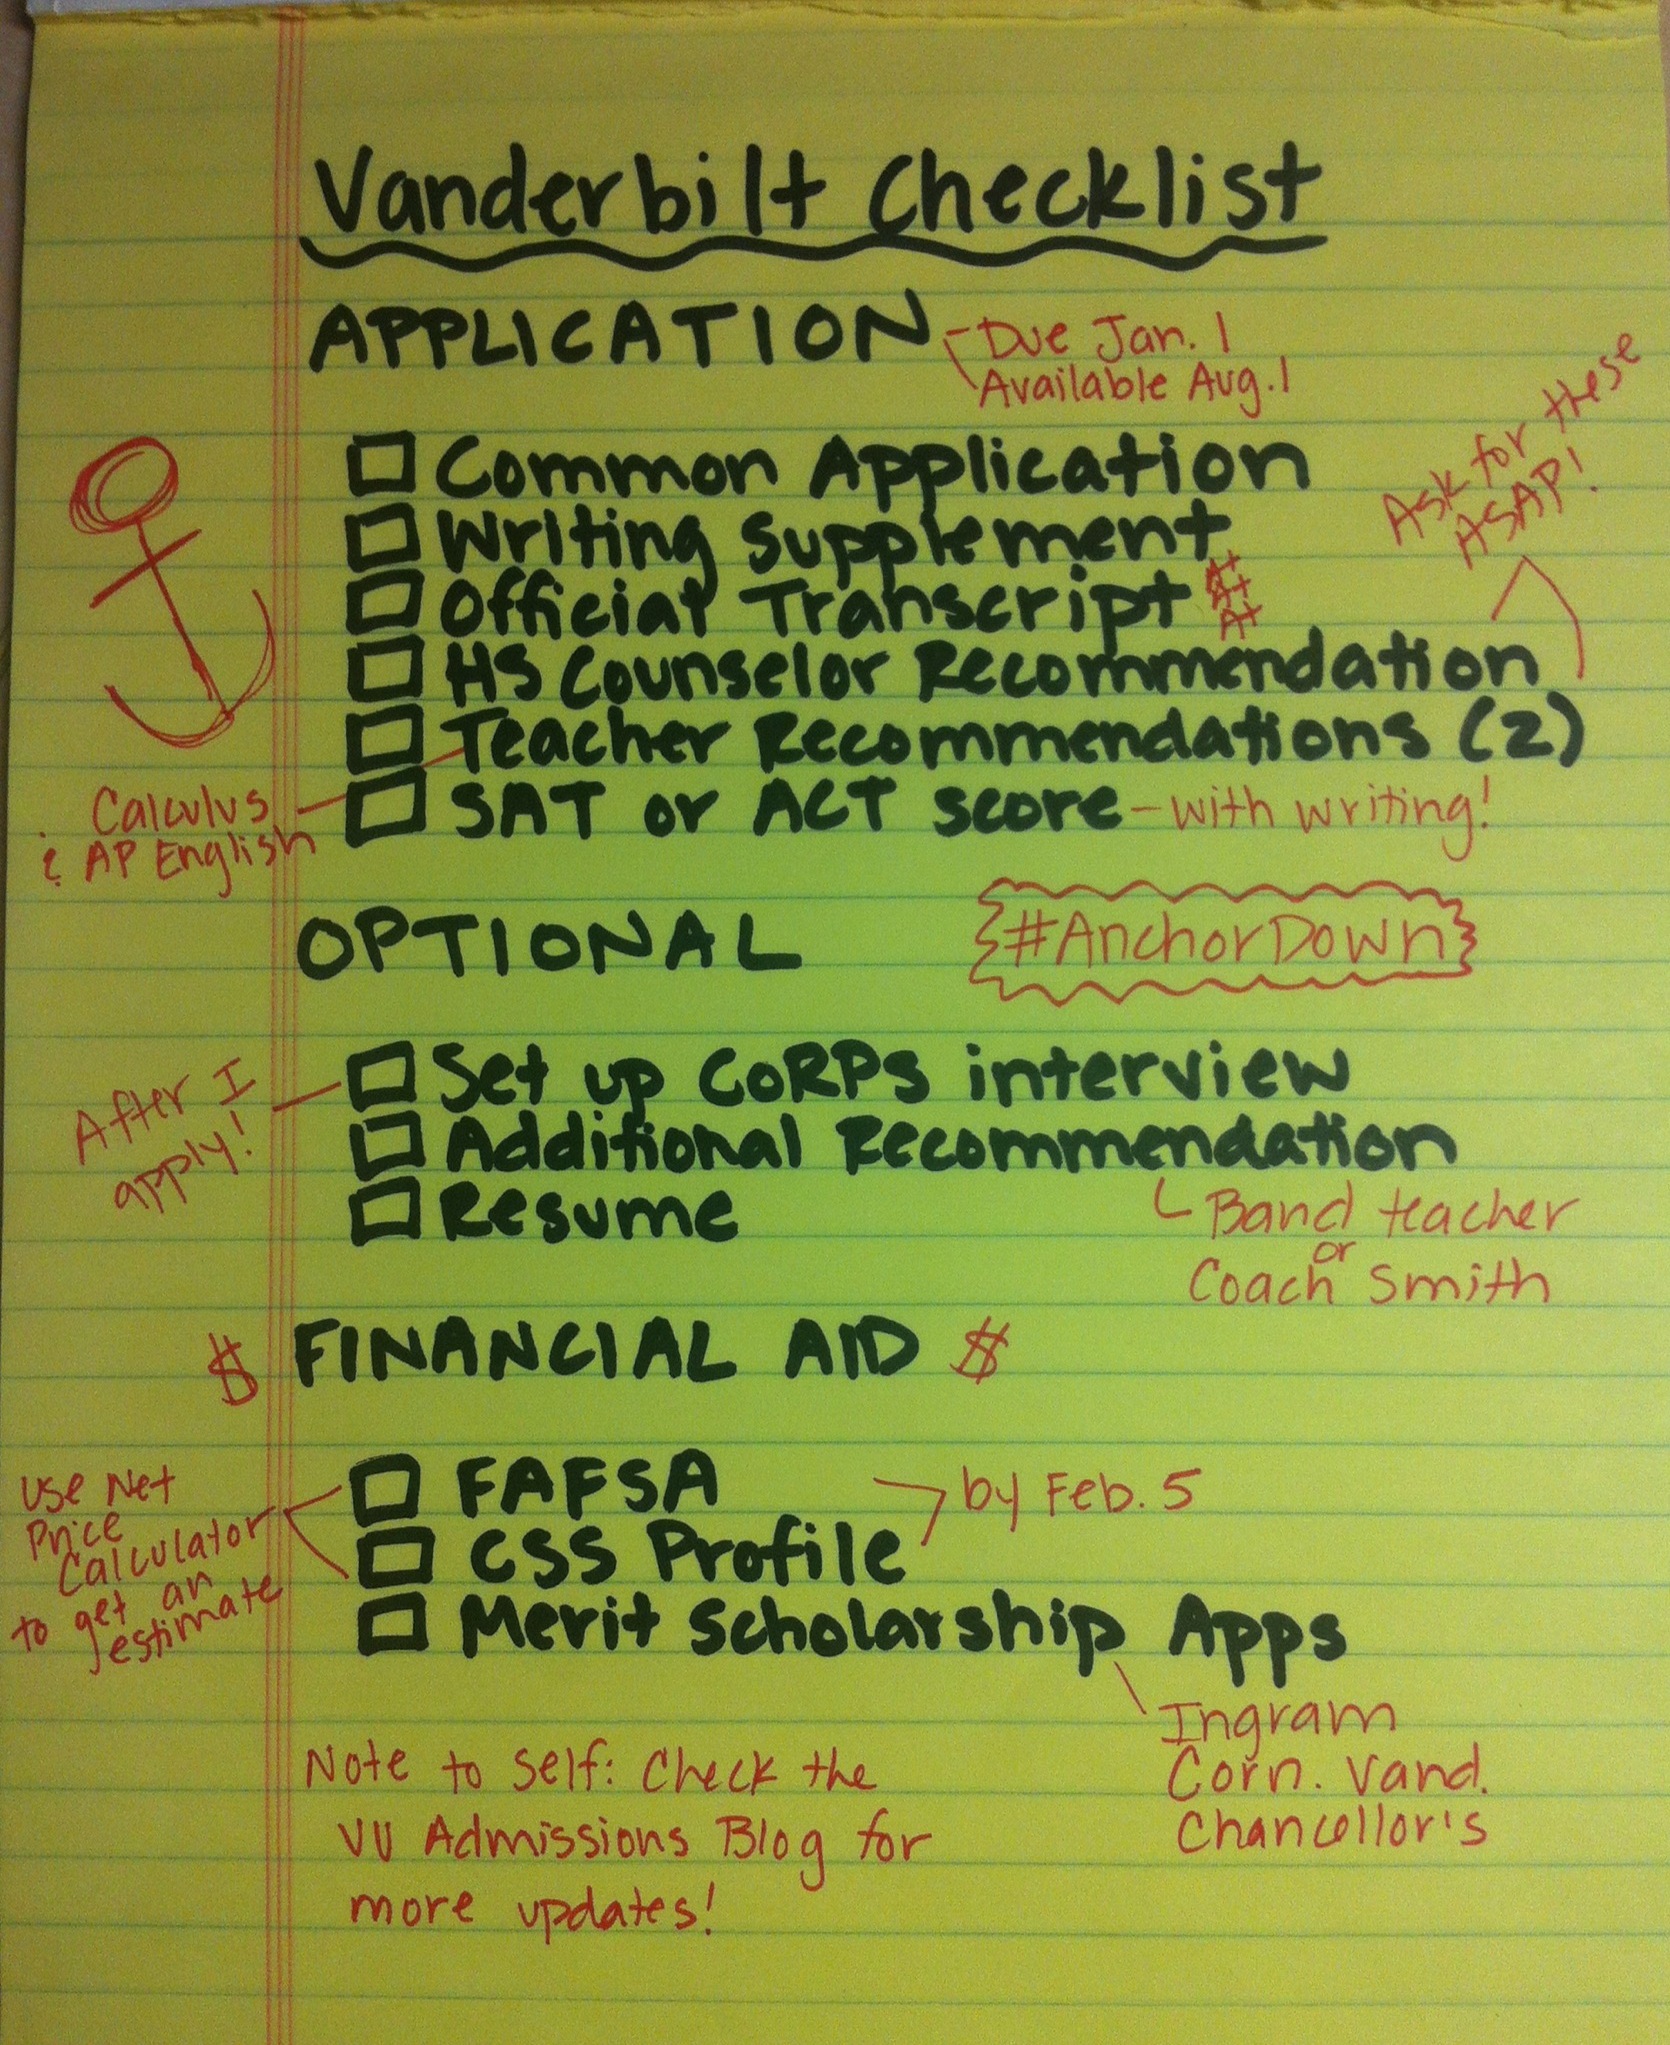 Vanderbilt Checklist
APPLICATION
Due Jan. 1
Available Aug. 1
Ask for these
ASAP!
Common Application
Writing Supplement
Official Transcript
A+
A+
A+
HS Counselor Recommendation
Teacher Recommendations (2)
Calculus
& AP English
SAT or ACT score - with writing!
OPTIONAL
#AnchorDown
After I
apply!
Set up CoRPs interview
Additional Recommendation
Band teacher
or
Coach Smith
Resume
$ FINANCIAL AID $
Use Net
Price
Calculator
to get an
estimate
FAFSA
by Feb. 5
CSS Profile
Merit Scholarship Apps
Ingram
Corn. Vand.
Chancellor's
Note to self: Check the
VU Admissions Blog for
more updates!